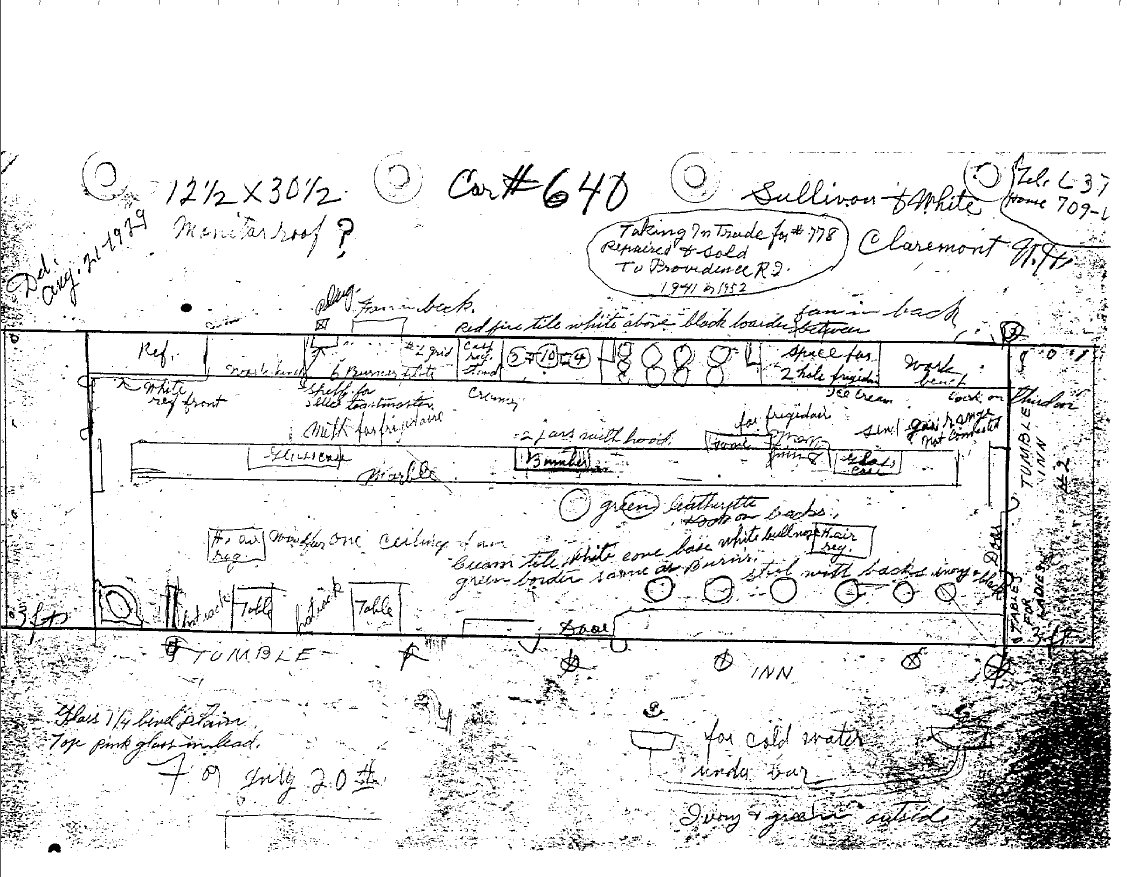 12½ X 30½
Car # 640
Sullivan & White
Claremont N.H.
Tel. C-37
Home 709-
Monitor roof ?
Del.
Aug. 21-1929
Taking In Trade for #778
Repaired & Sold
To Providence R.I.
1941 in 1952
plug
Fan in back.
fan in back
Red fire tile white above black boarder between
Ref.
Work bench
6 Burner plate
#2 grid
Cash
reg.
Stand
5 10 4
space for
2 hole frigid
Ice Cream
Work
bench
White
ref front
shelf for
elec toastmaster
Creamer
Milk for frigidaire
2 jars with hood
for frigidaire
gas range
not connected
Marble
3 number
Glass
case
green leatherette
on backs.
Hair
reg.
one ceiling fan
Hair
reg.
Cream tile, white cove base white bullnose
green border same as
stool with backs ivory & black
3 ft
hat rack
Table
hat rack
Table
Door
Door
TUMBLE
INN
#2
TABLES
FOR
LADIES
3 ft
TUMBLE
INN
Glass 1/4 bend
Top pink glass in lead.
July 20th
for cold water
under bar
Ivory & green outside